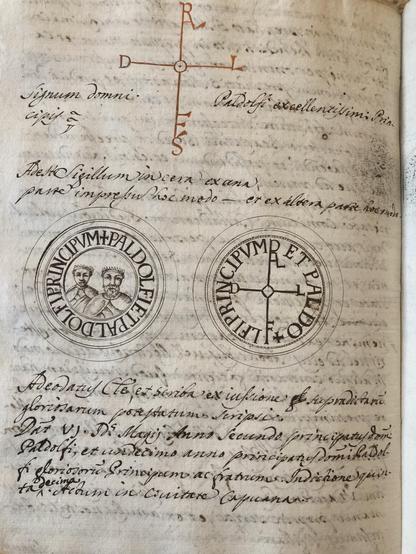 R
D L
F
S
Signum domni Paldolfi excellentissimi Prin-
cipis
Adest Sigillum in cera ex una
parte impressus hoc modo — et ex altera parte hoc modo
+ PALDOLFI ET PALDOLFI PRINCIPVM
R
D L
F
ET PALDO + LFI PRINCIPVM
Adeodatus Cle. et scriba ex iussione supradictarum
gloriosarum potestatum scripsi.
Dat VI Ds Magij Anno Secundo principatus dom
Paldolfi, et undecimo anno principatus domni Paldol-
fi gloriosoru Principum ac fratrum. Indictione quin-
ta decima. Actum in civitate Capuana